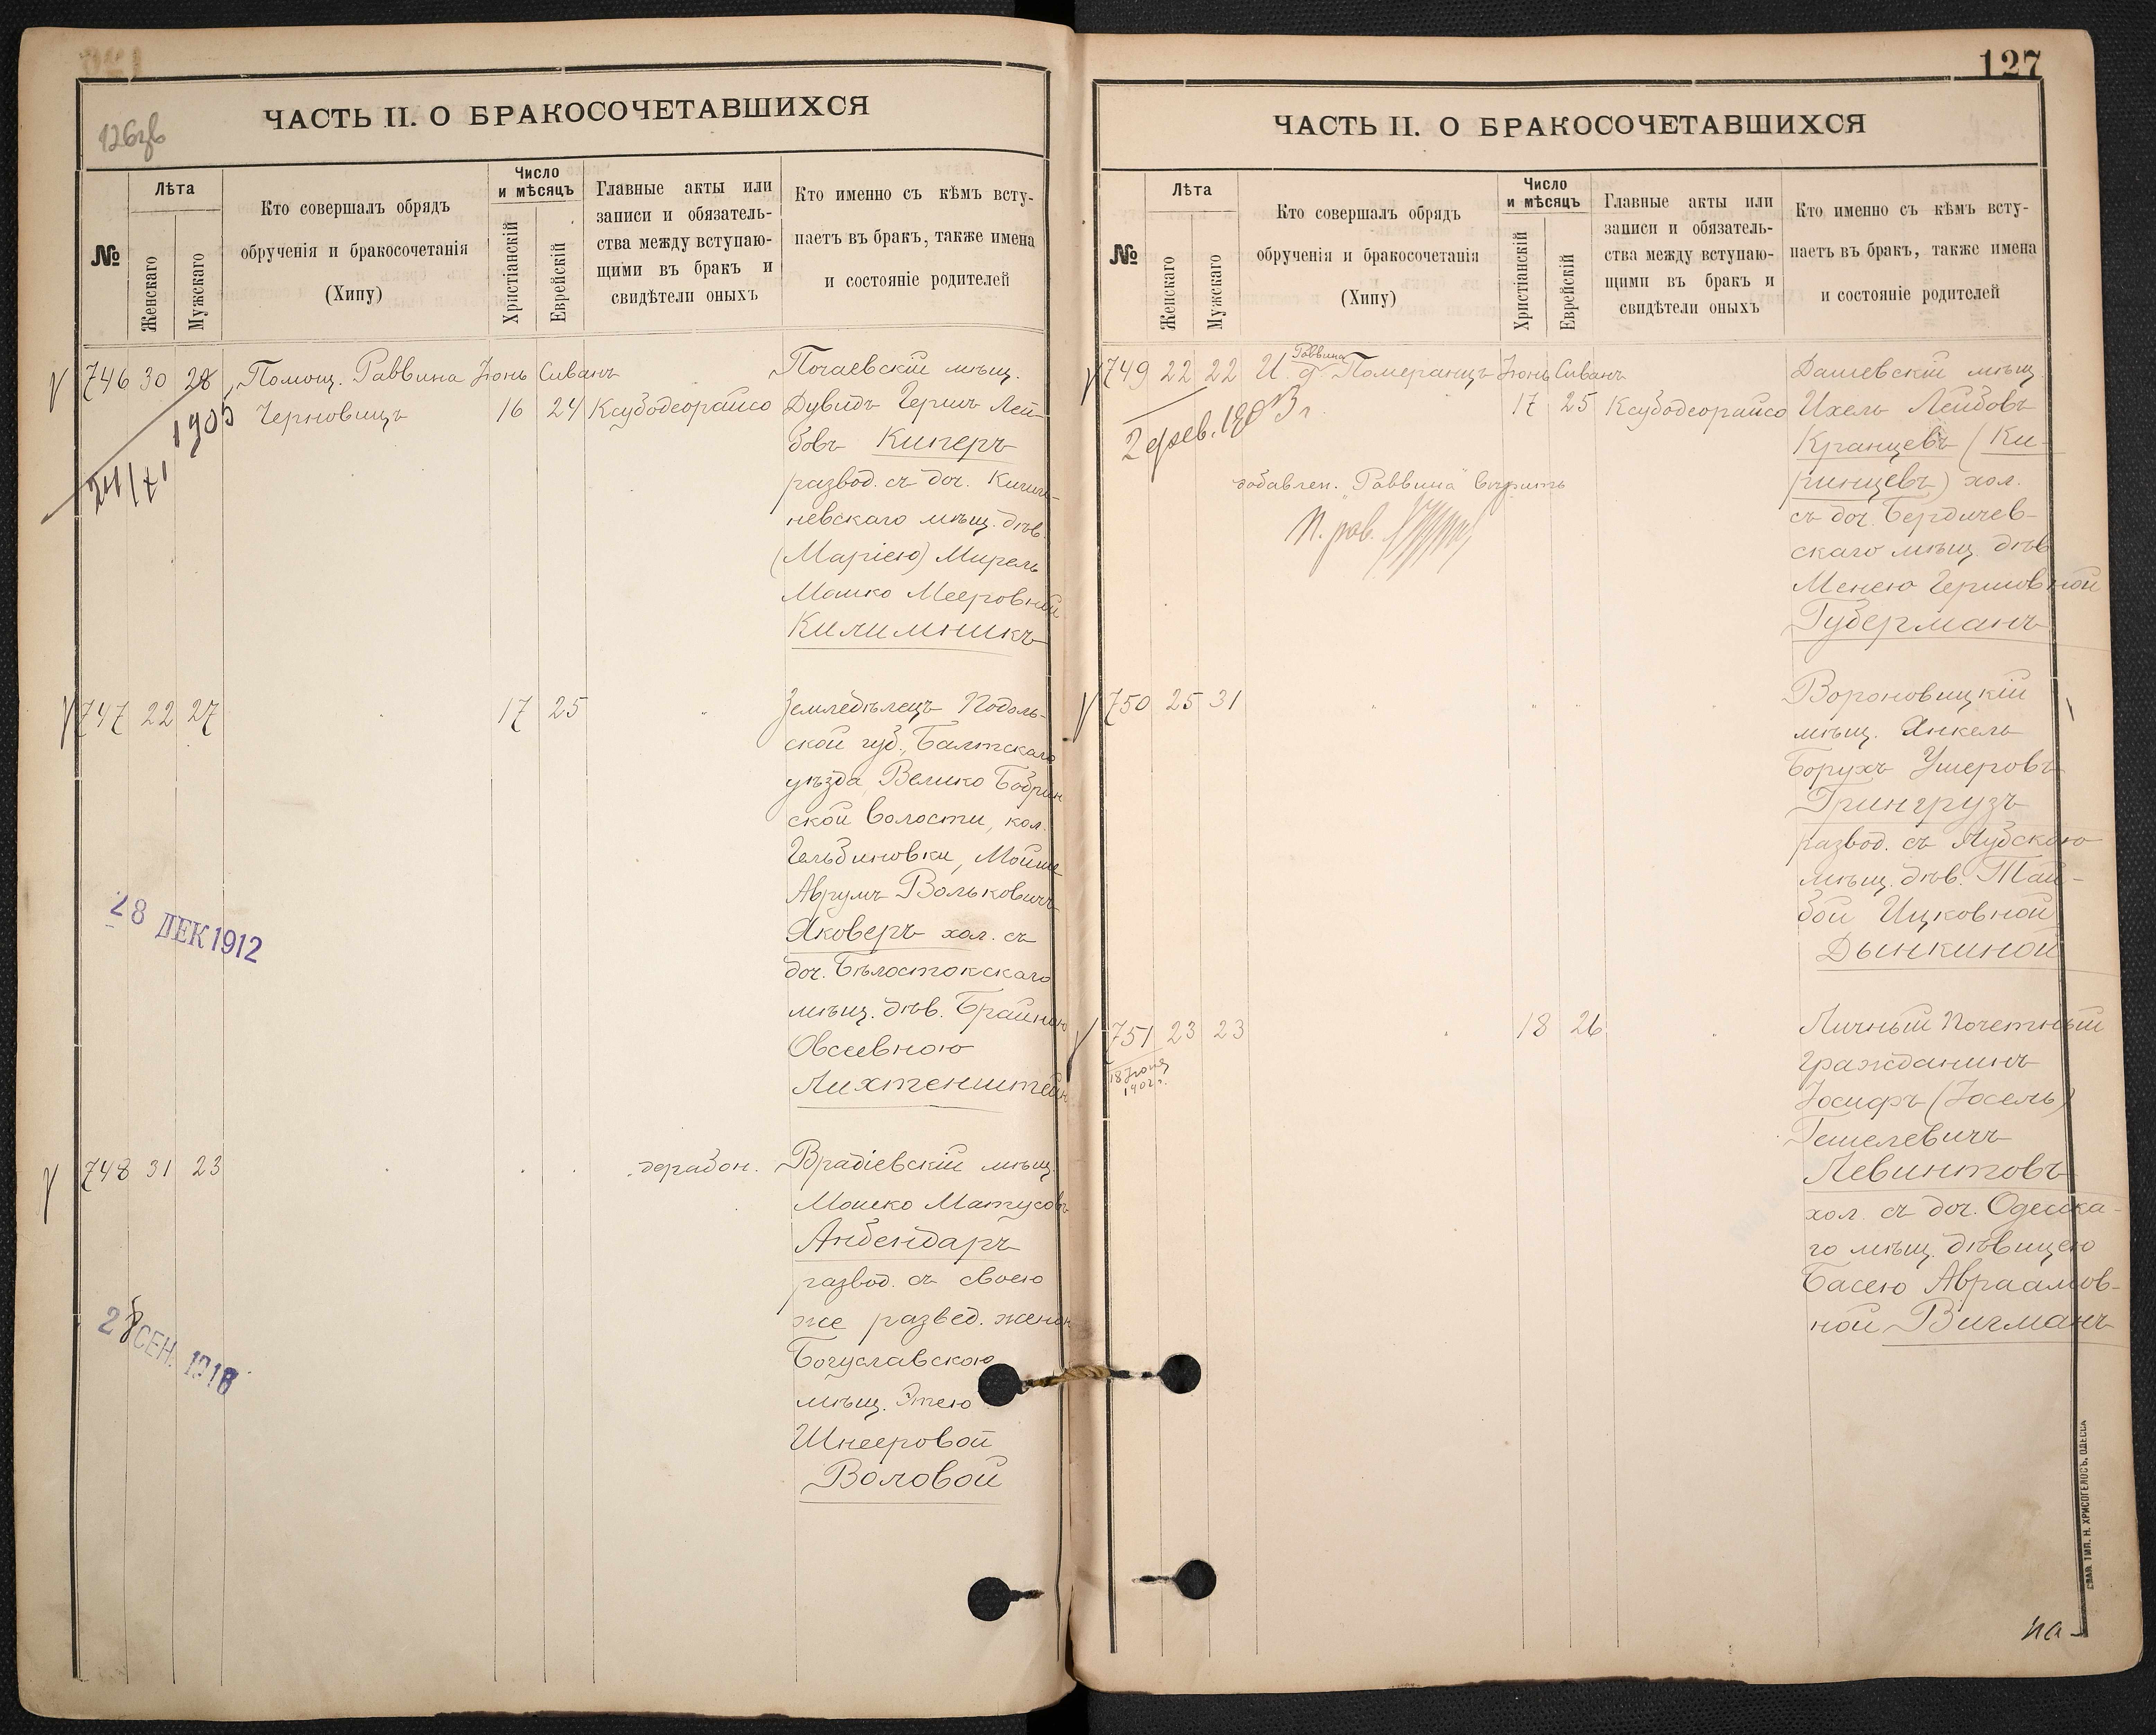 ЧАСТЬ II. О БРАКОСОЧЕТАВШИХСЯ
№
Лѣта
Женскаго
Мужскаго
Кто совершалъ обрядъ
обрученія и бракосочетанія
(Хипу)
Число
и мѣсяцъ
Христіанскій
Еврейскій
Главные акты или
записи и обязатель-
ства между вступаю-
щими въ бракъ и
свидѣтели оныхъ
Кто именно съ кѣмъ всту-
паетъ въ бракъ, также имена
и состояніе родителей
746 30 28 Помощ. Раввина Іюнь Сиванъ
Черновицъ 16 24 Ксубодеорайсо
1903
Почаевскій мѣщ.
Дувидъ Гершъ Лей-
бовъ Киперъ
развод. съ доч. Кишин-
невскаго мѣщ. дѣв.
(Маріею) Мирель
Мошко Мееровной
Килимникъ
747 22 27 17 25
Земледѣлецъ Подоль-
ской губ., Балтскаго
уѣзда, Велико Бобрин
ской волости, кол.
Гельбиновки, Мойше
Аврумъ Вольковичъ
Яковеръ хол. съ
доч. Бѣлостокскаго
мѣщ. дѣв. Брайною
Овсеевною
Лихтенштейн
28 ДЕК 1912
748 31 23 дерабон.
Врадіевскій мѣщ.
Мошко Матусовъ
Анбендаръ
развод. съ своею
же развед. женою
Богуславскою
мѣщ. Этею
Шнееровой
Воловой
28 СЕН. 1918
127
ЧАСТЬ II. О БРАКОСОЧЕТАВШИХСЯ
№
Лѣта
Женскаго
Мужскаго
Кто совершалъ обрядъ
обрученія и бракосочетанія
(Хипу)
Число
и мѣсяцъ
Христіанскій
Еврейскій
Главные акты или
записи и обязатель-
ства между вступаю-
щими въ бракъ и
свидѣтели оныхъ
Кто именно съ кѣмъ всту-
паетъ въ бракъ, также имена
и состояніе родителей
Раввина
749 22 22 И. д. Померанцъ Іюнь Сиванъ
17 25 Ксубодеорайсо
2 фев. 1903 г.
добавлен. "Раввина" вѣрить
П. рав.
Дашевскій мѣщ.
Ихель Лейбовъ
Кранцевъ (Ки-
ринцевъ) хол.
съ доч. Бердичев-
скаго мѣщ. дѣв.
Менею Гершовной
Губерманъ
750 25 31
Вороновицкій
мѣщ. Янкель
Борухъ Ушеровъ
Грингрузъ
развод. съ Лубскою
мѣщ. дѣв. Тай-
бой Ицковной
Дынкиной
751 23 23 18 26
18 Іюня
1902 г.
Личный Почетный
гражданинъ
Іосифъ (Іосель)
Гешелевичъ
Левинтовъ
хол. съ доч. Одесска-
го мѣщ. дѣвицею
Басею Авраамов-
ной Вигманъ
СЛАВ. ТИП. Н. ХРИСОГЕЛОСЪ. ОДЕССА
на-